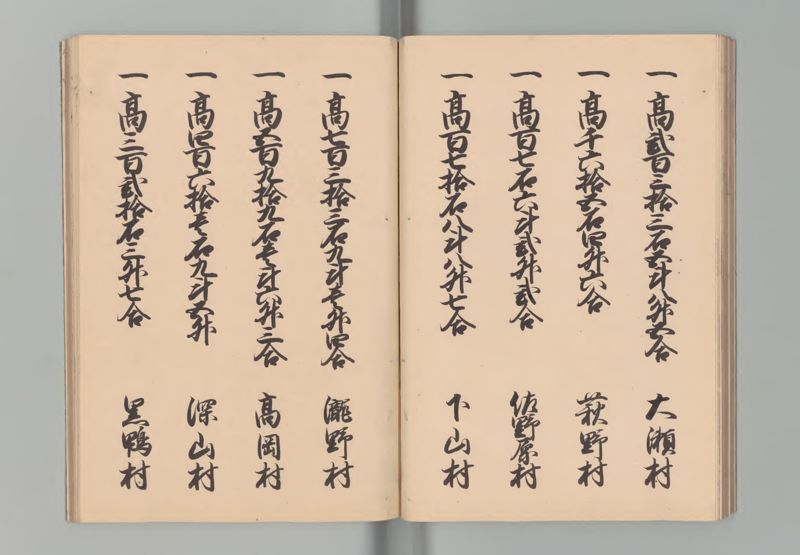 一高貳百三拾三石五斗八升五合 大瀬村
一高千六拾五石四升六合 萩野村
一高百七石六斗貳升貳合 佐野原村
一高百七拾石八斗八升七合 下山村
一高七百三拾三石九斗壱升四合 瀧野村
一高五百九拾九石壱斗六升三合 高岡村
一高四百六拾壱石九斗五升 深山村
一高三百貳拾石三升七合 黒鴨村